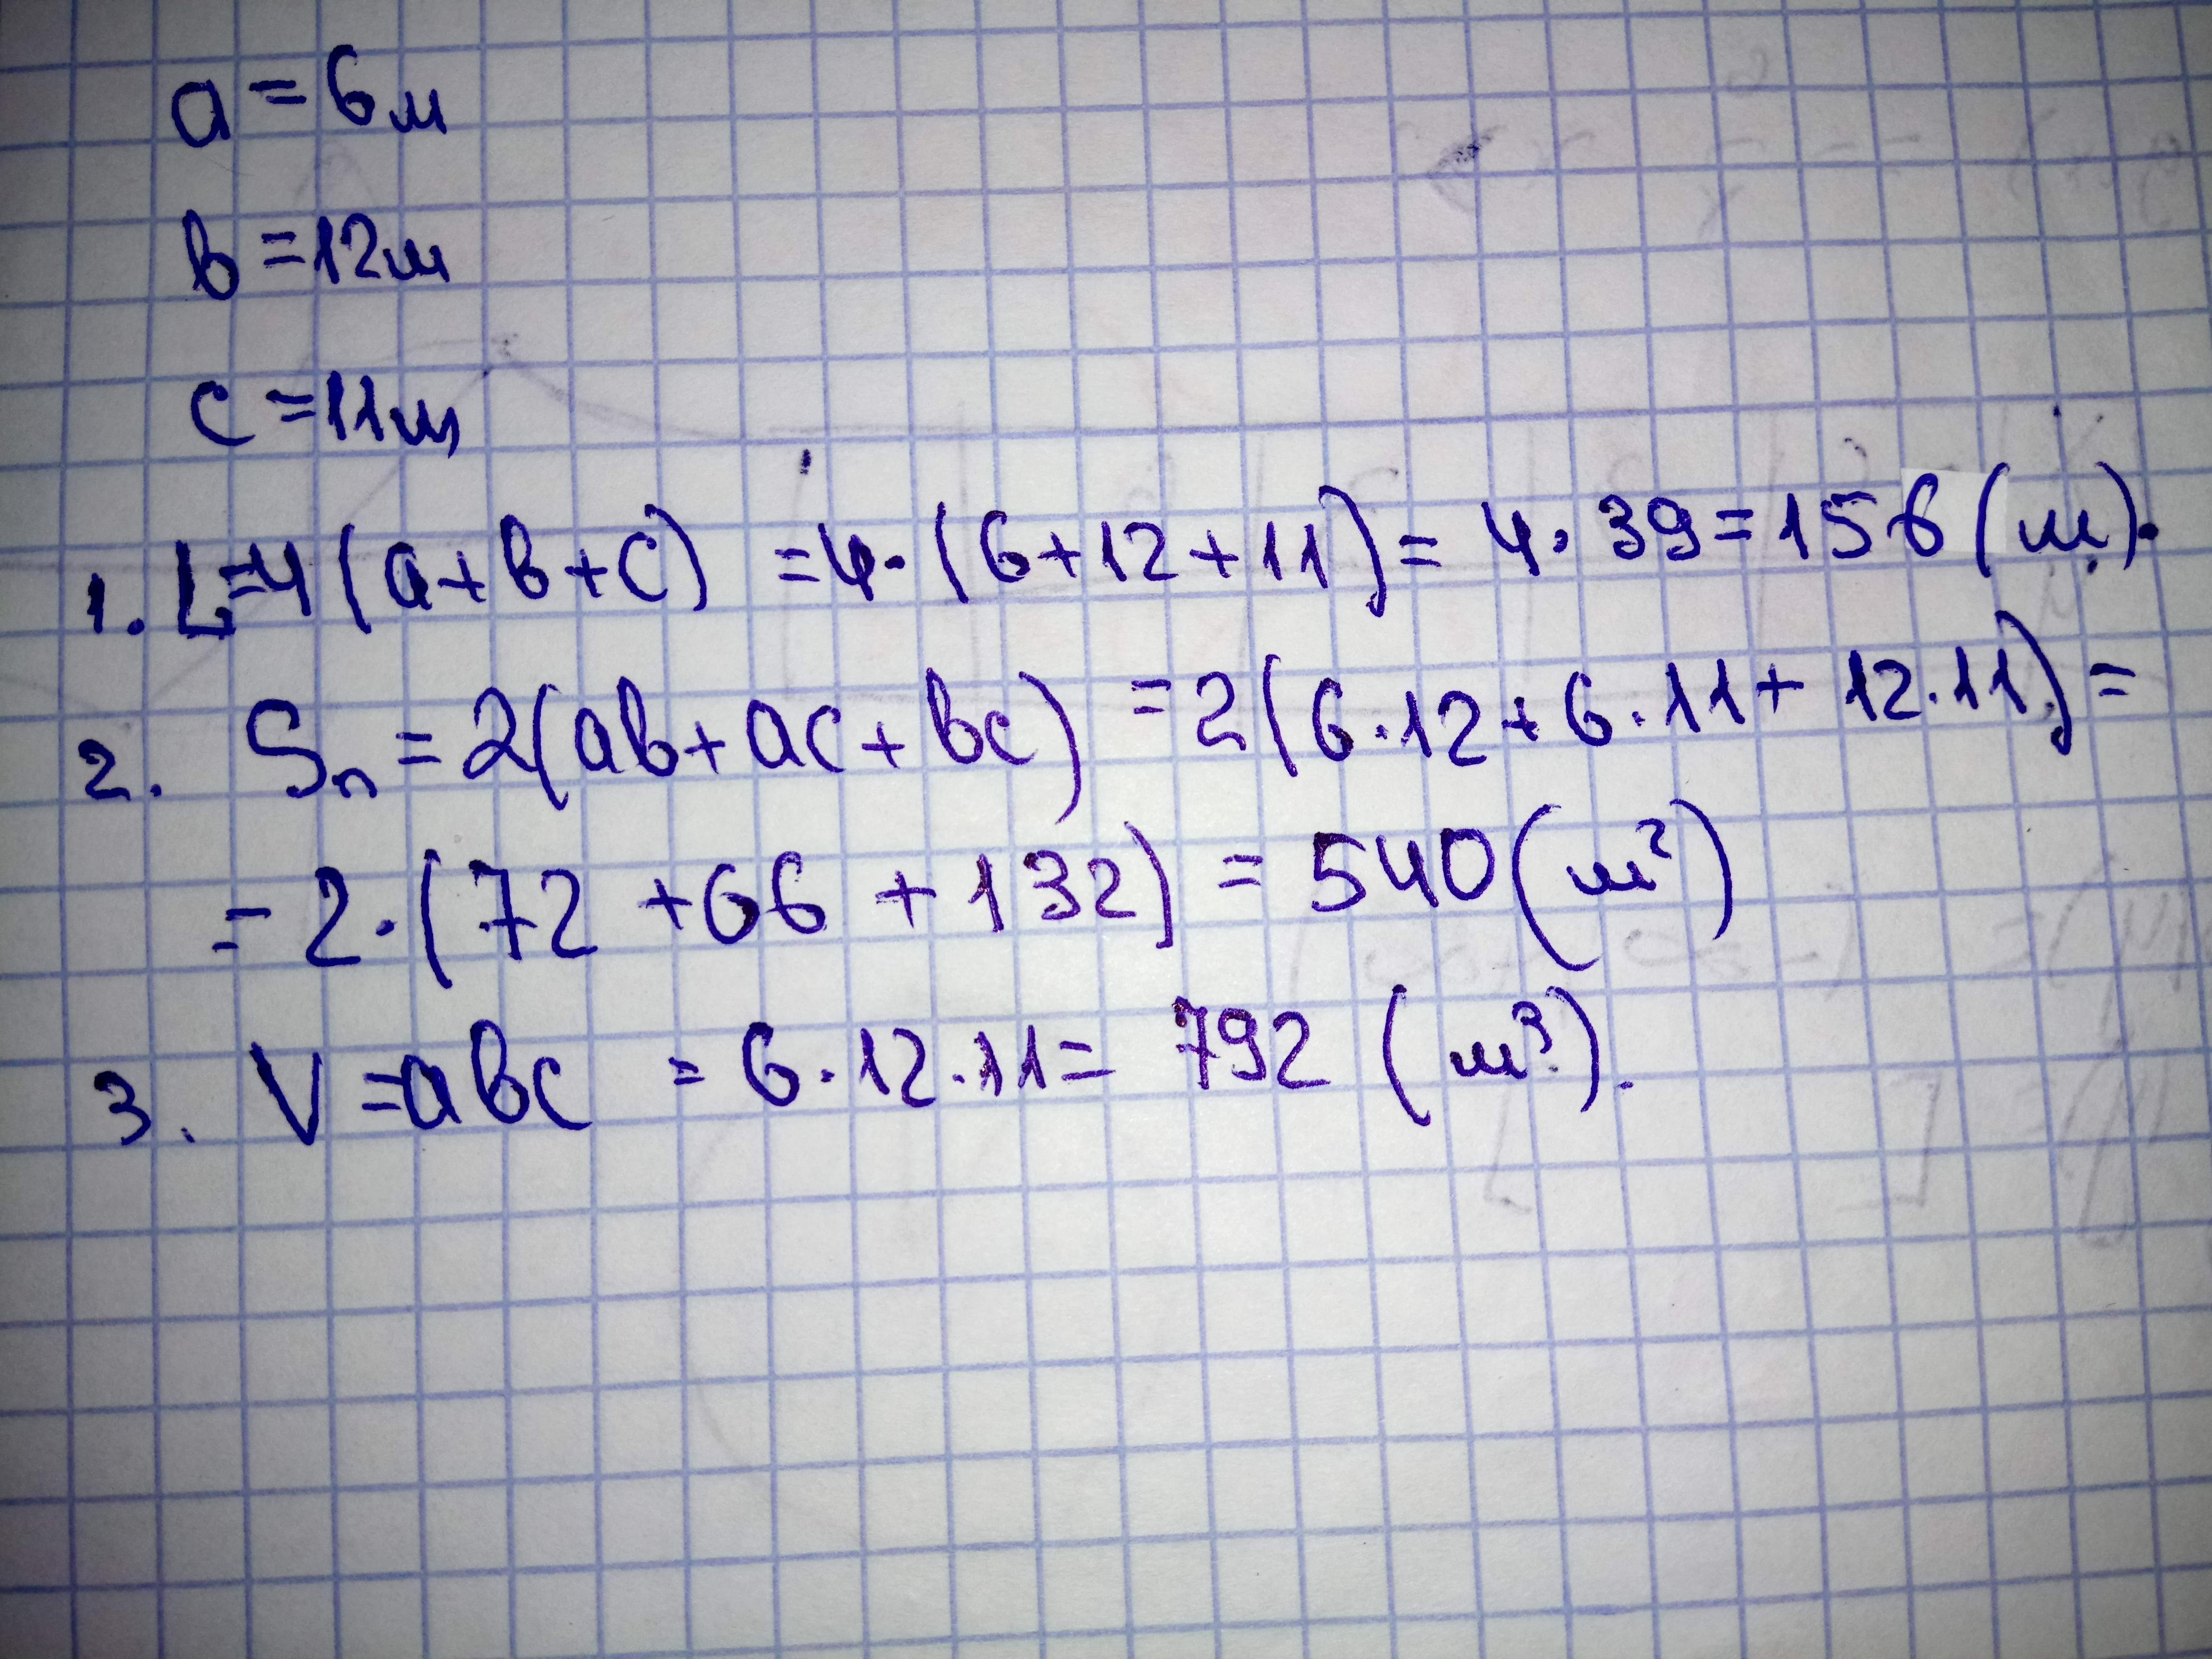 a = 6м
в = 12м
c = 11м
1. L=4(a+в+c) =4·(6+12+11)= 4·39=156(м).
2. Sп = 2(aв+ac+вc) =2(6·12+6·11+12·11)=
=2·(72+66+132) = 540(м²)
3. V=aвc = 6·12·11= 792 (м³).